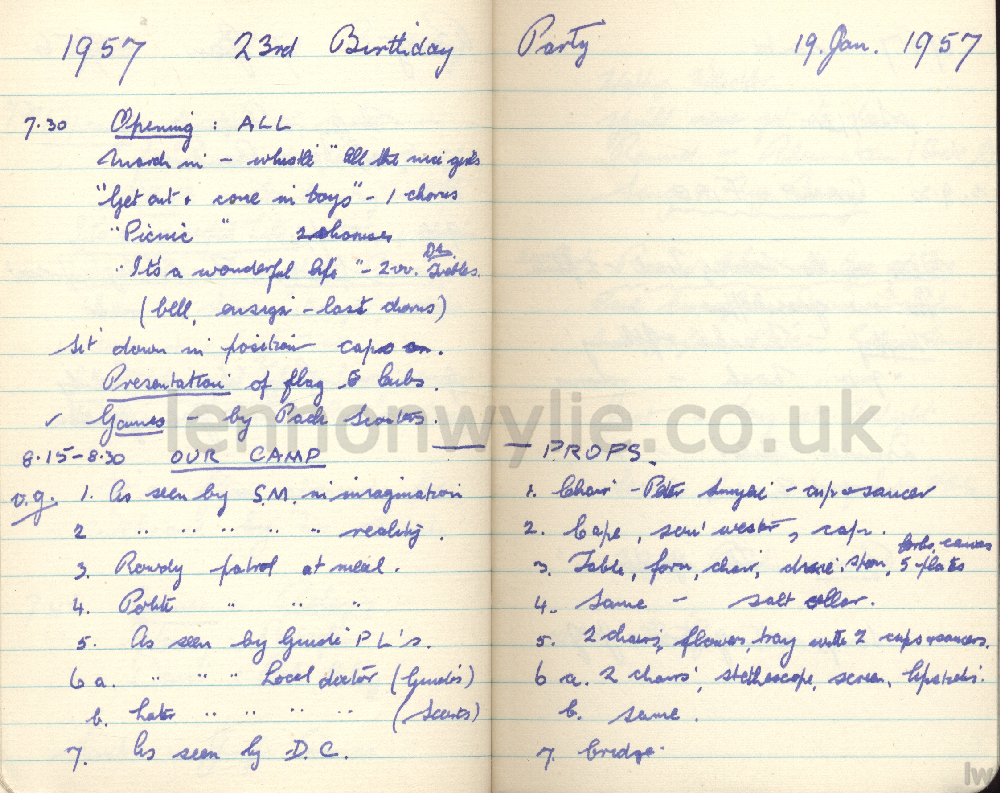 1957 23rd Birthday Party 19. Jan. 1957
7.30 Opening : ALL
March in - whistle "All the nice girls
"Get out & come in boys" - 1 chorus
"Picnic" 2 choruses
"It's a wonderful life" - 2 vv. Ds. Trebles.
(bell, ensign - last chorus)
Sit down in position caps on.
Presentation of flag to Cubs.
✓ Games - by Pack Scouters.
8.15-8.30 OUR CAMP
v.g. 1. As seen by S.M. in imagination
2 " " " " " reality.
3. Rowdy patrol at meal.
4. Polite " " "
5. As seen by Guide P L's.
6 a. " " " Local doctor (Guides)
b. Later " " " " (Scouts)
7. As seen by D.C.
— — PROPS.
1. Chair - Peter - cup & saucer
2. Cape, sou'wester, cap.
3. Table, form, chair, dixie, spoon, 5 plates forks, canvas
4. Same - salt cellar.
5. 2 chairs, flowers, tray with 2 cups & saucers.
6 a. 2 chairs, stethoscope, screen, lipsticks.
b. same.
7. bridge.
lennonwylie.co.uk
lw